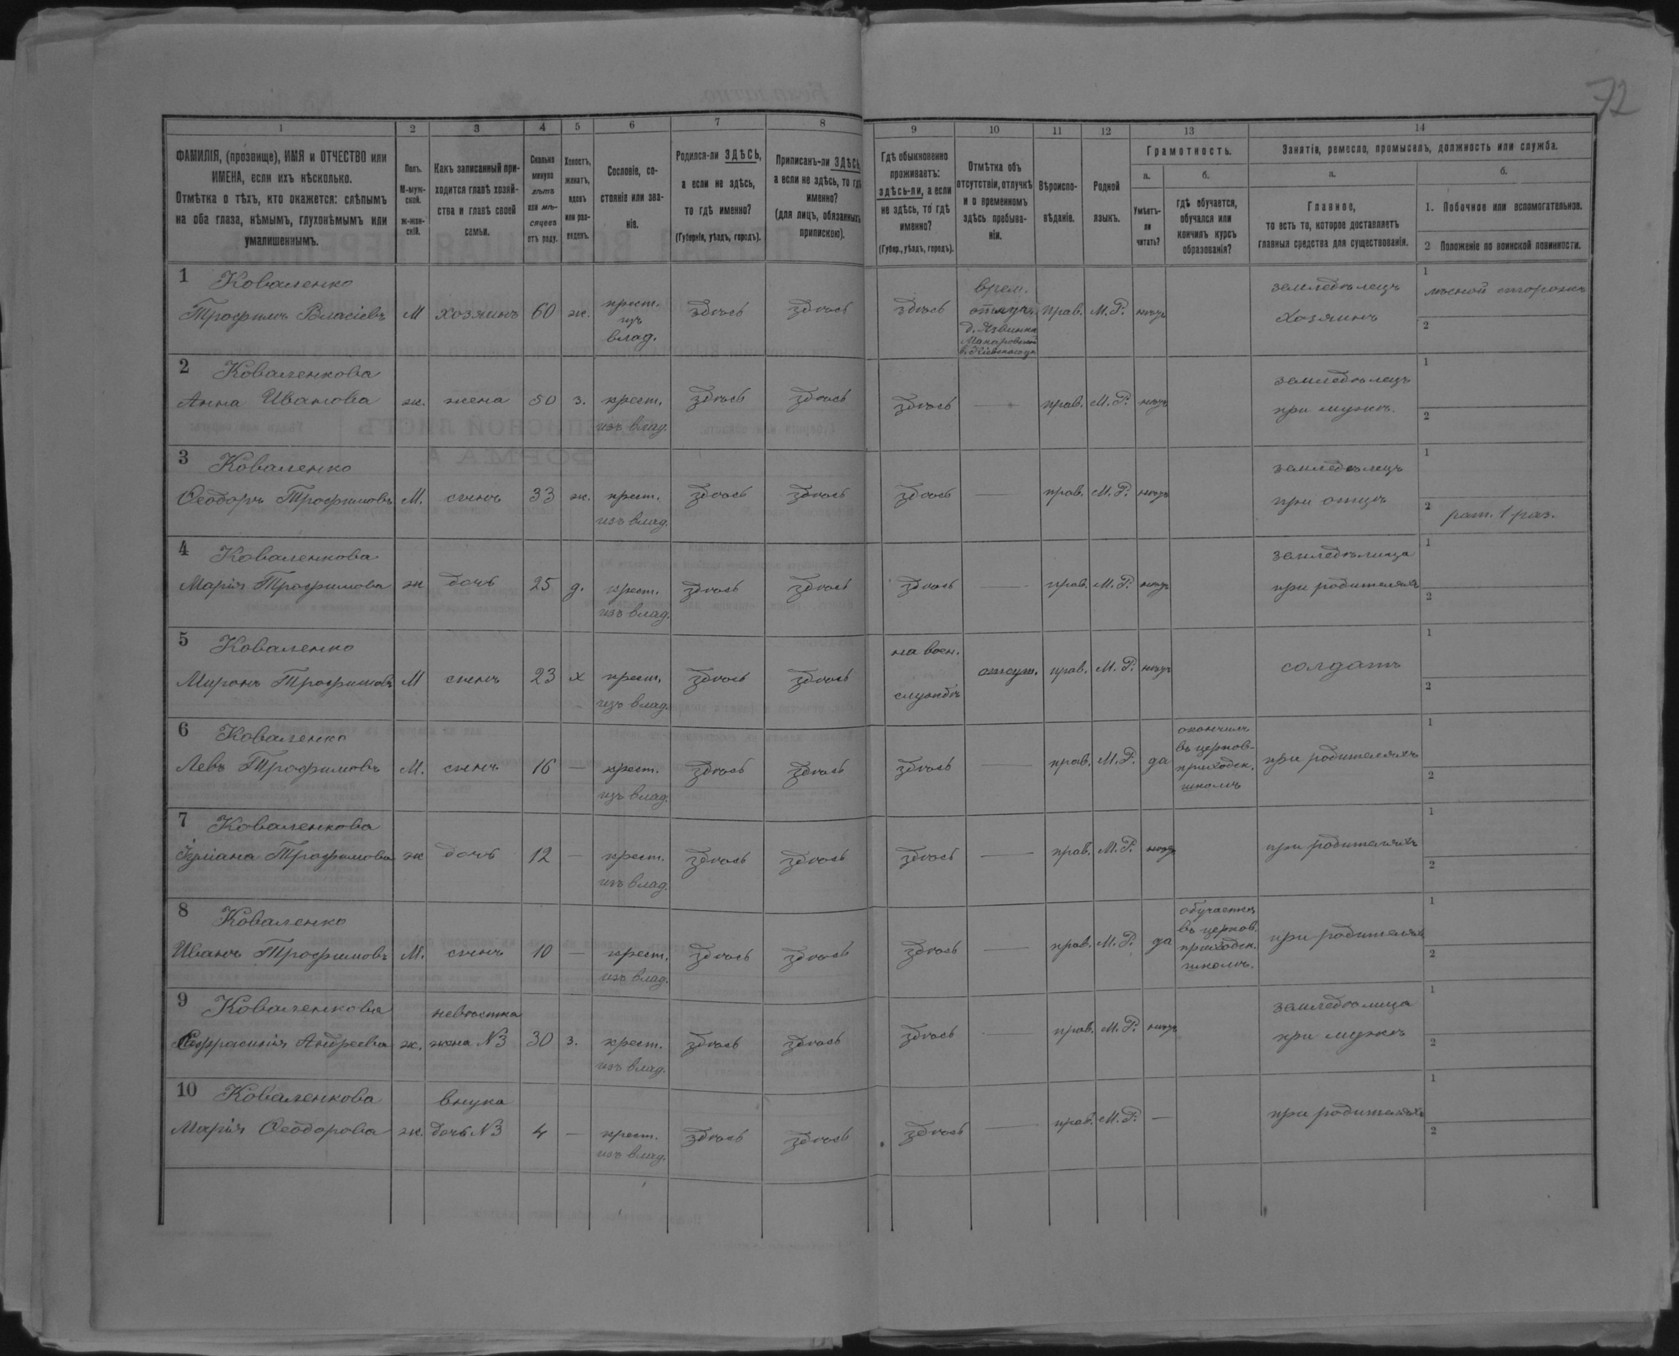 72
1 2 3 4 5 6 7 8 9 10 11 12 13 14
ФАМИЛІЯ, (прозвище), ИМЯ и ОТЧЕСТВО или
ИМЕНА, если ихъ нѣсколько.
Отмѣтка о тѣхъ, кто окажется: слѣпымъ
на оба глаза, нѣмымъ, глухонѣмымъ или
умалишеннымъ.
Полъ.
М-муж-
ской.
ж-жен-
скій.
Какъ записанный при-
ходится главѣ хозяй-
ства и главѣ своей
семьи.
Сколько
минуло
лѣтъ
или мѣ-
сяцевъ
отъ роду.
Холостъ,
женатъ,
вдовъ
или раз-
веденъ.
Сословіе, со-
стояніе или зва-
ніе.
Родился-ли ЗДѢСЬ,
а если не здѣсь,
то гдѣ именно?
(Губернія, уѣздъ, городъ).
Приписанъ-ли ЗДѢСЬ,
а если не здѣсь, то гдѣ
именно?
(для лицъ, обязанныхъ
припискою).
Гдѣ обыкновенно
проживаетъ:
здѣсь-ли, а если
не здѣсь, то гдѣ
именно?
(Губер., уѣздъ, городъ).
Отмѣтка объ
отсутствіи, отлучкѣ
и о временномъ
здѣсь пребыва-
ніи.
Вѣроиспо-
вѣданіе.
Родной
языкъ.
Грамотность.
а.
Умѣетъ-
ли
читать?
б.
гдѣ обучается,
обучался или
кончилъ курсъ
образованія?
Занятіе, ремесло, промыселъ, должность или служба.
а.
Главное,
то есть то, которое доставляетъ
главныя средства для существованія.
б.
1. Побочное или вспомогательное.
2 Положеніе по воинской повинности.
1 Коваленко
Трофимъ Власіевъ М хозяинъ 60 ж. крест.
изъ
влад. здѣсь здѣсь здѣсь врем.
отлуч.
прав. М.Р. нѣтъ землѣделецъ
хозяинъ 1 лѣсной сторожъ
2
2 Коваленкова
Анна Иванова ж. жена 50 з. крест.
изъ влад. здѣсь здѣсь здѣсь — прав. М.Р. нѣтъ земледѣлецъ
при мужѣ. 1
2
3 Коваленко
Ѳеодоръ Трофимовъ М. сынъ 33 ж. крест.
изъ влад. здѣсь здѣсь здѣсь — прав. М.Р. нѣтъ земледѣлецъ
при отцѣ 1
2 рат. 1 раз.
4 Коваленкова
Марія Трофимова ж дочь 25 д. крест.
изъ влад. здѣсь здѣсь здѣсь — прав. М.Р. нѣтъ земледѣлица
при родителяхъ 1
2
5 Коваленко
Миронъ Трофимовъ М сынъ 23 х крест.
изъ влад. здѣсь здѣсь на воен.
службѣ отсут. прав. М.Р. нѣтъ солдатъ 1
2
6 Коваленко
Левъ Трофимовъ М. сынъ 16 — крест.
изъ влад. здѣсь здѣсь здѣсь — прав. М.Р. да окончилъ
въ церков-
приходск.
школѣ при родителяхъ 1
2
7 Коваленкова
Трофимова ж дочь 12 — крест.
изъ влад. здѣсь здѣсь здѣсь — прав. М.Р. нѣтъ при родителяхъ 1
2
8 Коваленко
Иванъ Трофимовъ М. сынъ 10 — крест.
изъ влад. здѣсь здѣсь здѣсь — прав. М.Р. да обучается
въ церков.
приходск.
школѣ. при родителяхъ 1
2
9 Коваленкова
Евфрасинія Андреева ж. невѣстка
жена №3 30 з. крест.
изъ влад. здѣсь здѣсь здѣсь — прав. М.Р. нѣтъ земледѣлица
при мужѣ 1
2
10 Коваленкова
Марія Ѳеодорова ж. внука
дочь №3 4 — крест.
изъ влад. здѣсь здѣсь здѣсь — прав. М.Р. — при родителяхъ 1
2